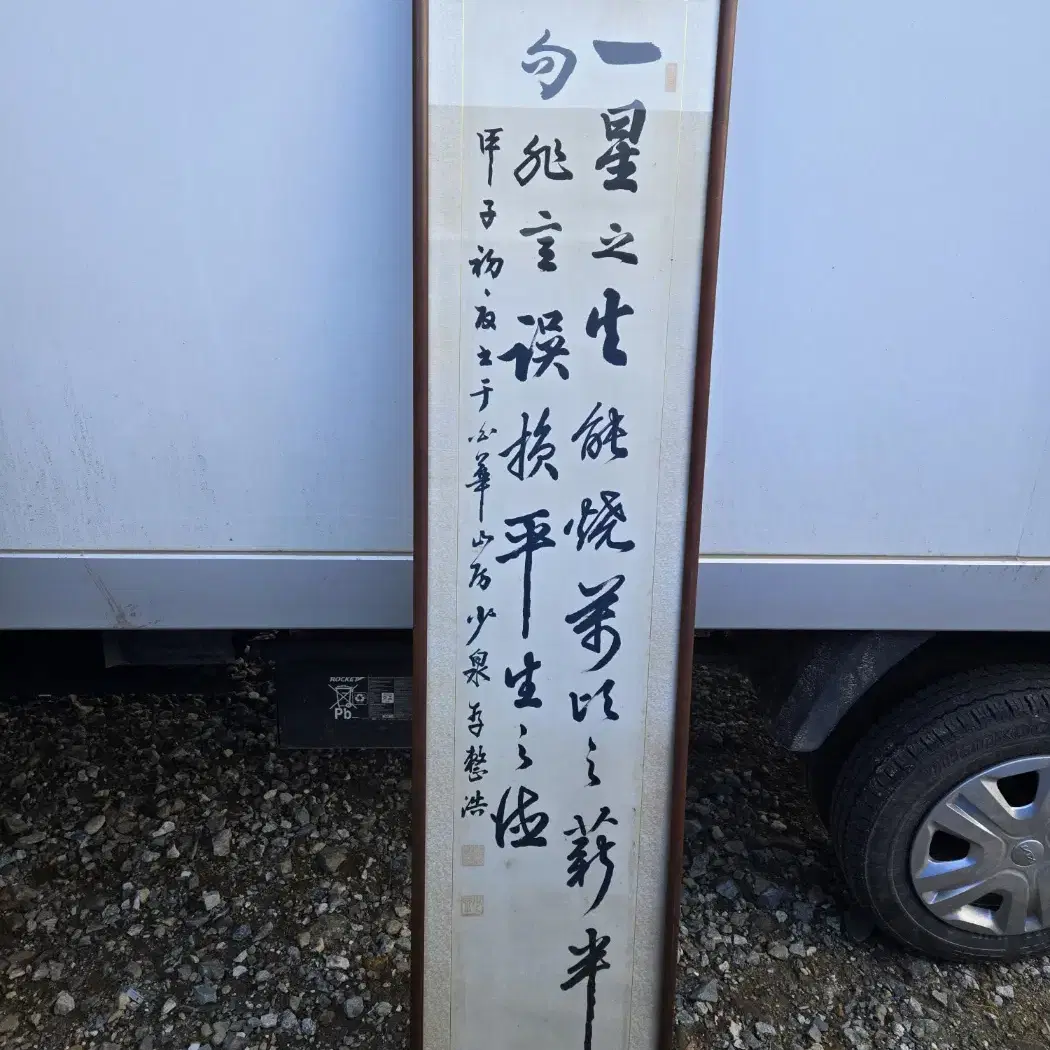 一星之火能燒萬頃之薪半
句非言誤損平生之德
甲子初夏書于華山房少泉整浩
ROCKET
Pb